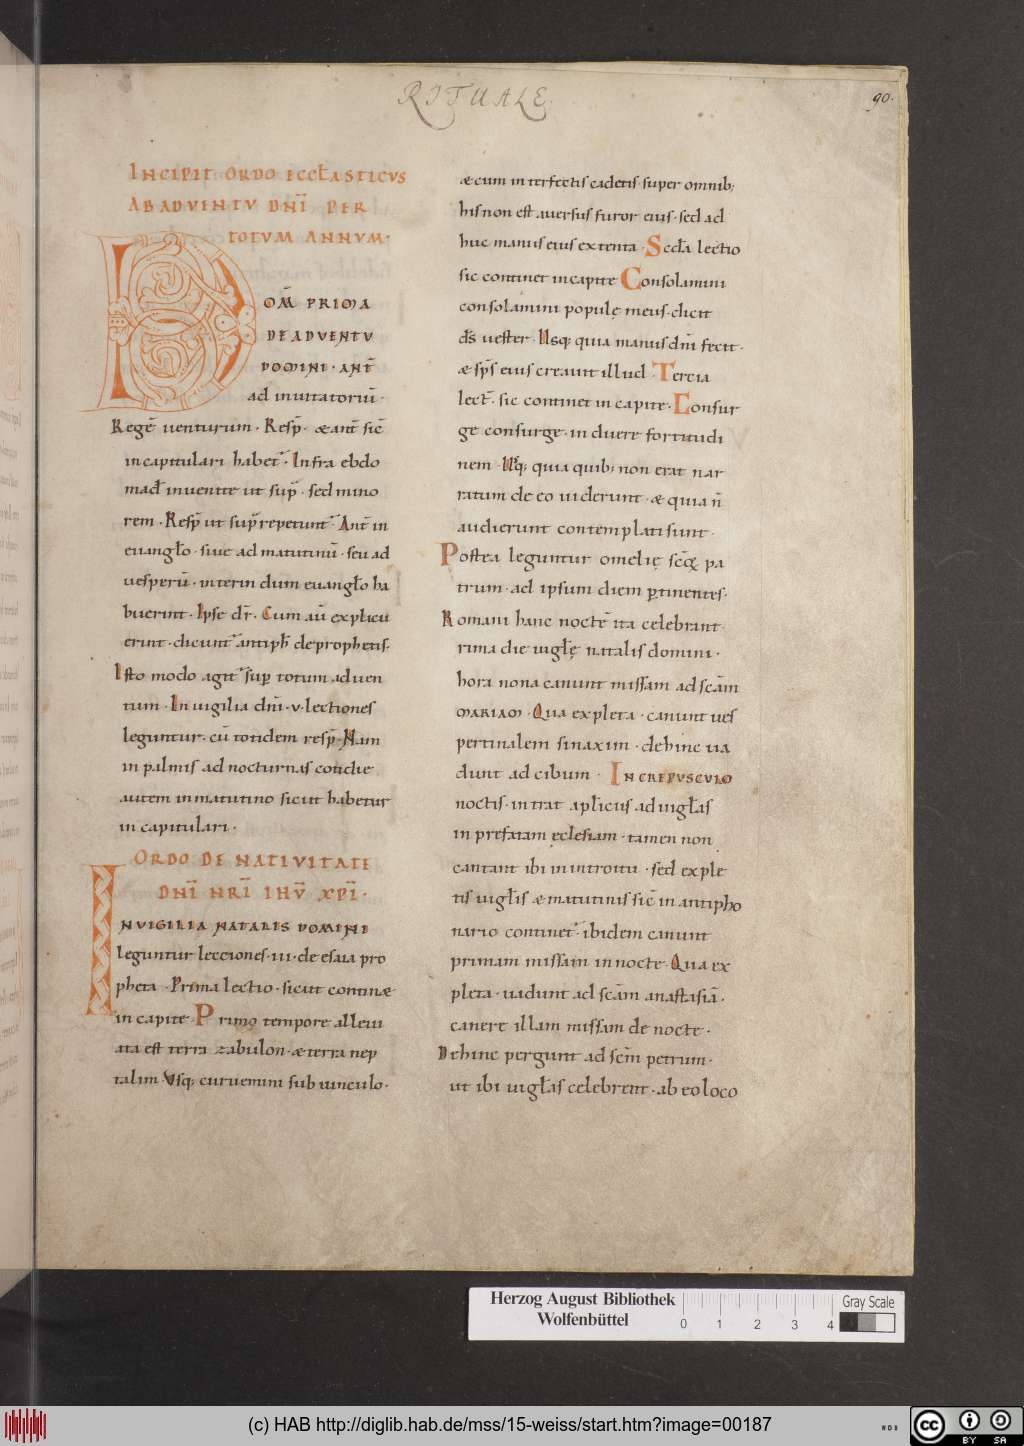 RITUALE
90.
INCIPIT ORDO ECCLASTICVS
AB ADVENTV DNI PER
TOTVM ANNVM·
DOM̄ PRIMA
DE ADVENTV
DOMINI · ANT̄
ad inuitatoriū·
Regē uenturum · Resp̄ · & ant̄ sic̄
in capitulari habet᷑ · Infra ebdo
mad̄ inuenite ut sup̄ · sed mino
rem · Resp̄ ut sup̄ repetunt᷑ · Ant̄ in
euanglo · siue ad matutinū · seu ad
uesperū · interin dum euanglo ha
buerint · Ipse dr̄ · Cum aū explicu
erint · dicunt᷑ antiph̄ de prophetis·
Isto modo agit᷑ sup̱ totum aduen
tum · In uigilia dn̄i · v · lectiones
leguntur · cū totidem resp̄ · Nam
in palmis ad nocturnas cotidie
autem in matutino sicut habetur
in capitulari ·
ORDO DE NATIVITATE
DN̄I NR̄I IHV̄ XPI·
IN VIGILIA NATALIS DOMINI
Leguntur lectiones · iii · de esaia pro
pheta · Prima lectio · sicut contin&
in capite · Primo tempore alleui
ata est terra zabulon · & terra nep
talim Vsq; curuemini sub uinculo·
& cum interfectis cadetis · super omnib;
his non est auersus furor eius · sed ad
huc manus eius extenta · Sccd̄a lectio
sic continet in capite Consolamini
consolamini popule meus · dicit
ds̄ uester · Usq; quia manus dn̄i fecit ·
& sps̄ eius creauit illud · Tercia
lect̄ · sic continet in capite · Consur
ge consurge · induere fortitudi
nem · Usq; quia quib; non erat nar
ratum de eo uiderunt · & quia n̄
audierunt contemplati sunt ·
Postea leguntur omelię scōꝝ pa
trum · ad ipsum diem ꝑtinentes·
Romani hanc noctē ita celebrant
rima die uiglę natalis domini ·
hora nona canunt missam ad scām
MARIAM · Qua expleta · canunt ues
pertinalem sinaxim · dehinc ua
dunt ad cibum · IN CREPVSCVLO
noctis · intrat aplicus ad uiglas
in prefatam ęclesiam · tamen non
cantant ibi in introitu · sed exple
tis uiglis & matutinis sic̄ in antipho
nario continet᷑ · ibidem canunt
primam missam in nocte · Qua ex
pleta · uadunt ad scām anastasiā ·
canere illam missam de nocte ·
Dehinc pergunt ad scm̄ petrum ·
ut ibi uiglas celebrent · ab eo loco
Herzog August Bibliothek
Wolfenbüttel
0 1 2 3 4
Gray Scale
(c) HAB http://diglib.hab.de/mss/15-weiss/start.htm?image=00187
cc BY SA